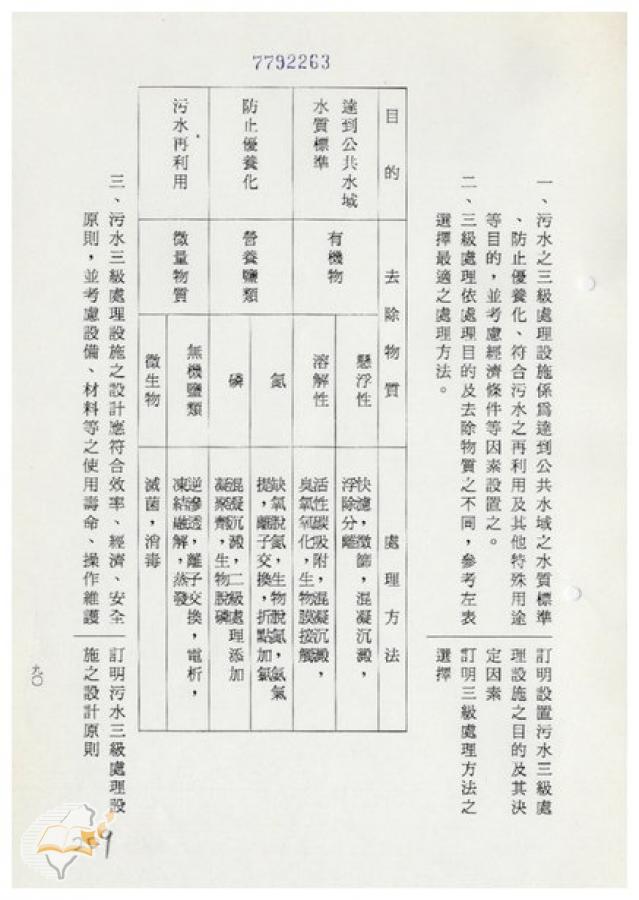 7792263
一、污水之三級處理設施係爲達到公共水域之水質標準
、防止優養化、符合污水之再利用及其他特殊用途
等目的，並考慮經濟條件等因素設置之。
二、三級處理依處理目的及去除物質之不同，參考左表
選擇最適之處理方法。
訂明設置污水三級處
理設施之目的及其決
定因素
訂明三級處理方法之
選擇
目的
去除物質
處理方法
達到公共水域
水質標準
有機物
懸浮性
快濾，微篩，混凝沉澱，
浮除分離
溶解性
活性碳吸附，混凝沉澱，
臭氧氧化，生物膜接觸
防止優養化
營養鹽類
氮
缺氧脫氮，生物脫氮，氨氣
提，離子交換，折點加氯
磷
混凝沉澱，二級處理添加
凝聚劑，生物脫磷
污水再利用
微量物質
無機鹽類
逆滲透，離子交換，電析，
凍結融解，蒸發
微生物
滅菌，消毒
三、污水三級處理設施之設計應符合效率、經濟、安全
原則，並考慮設備、材料等之使用壽命、操作維護
訂明污水三級處理設
施之設計原則
九〇
259